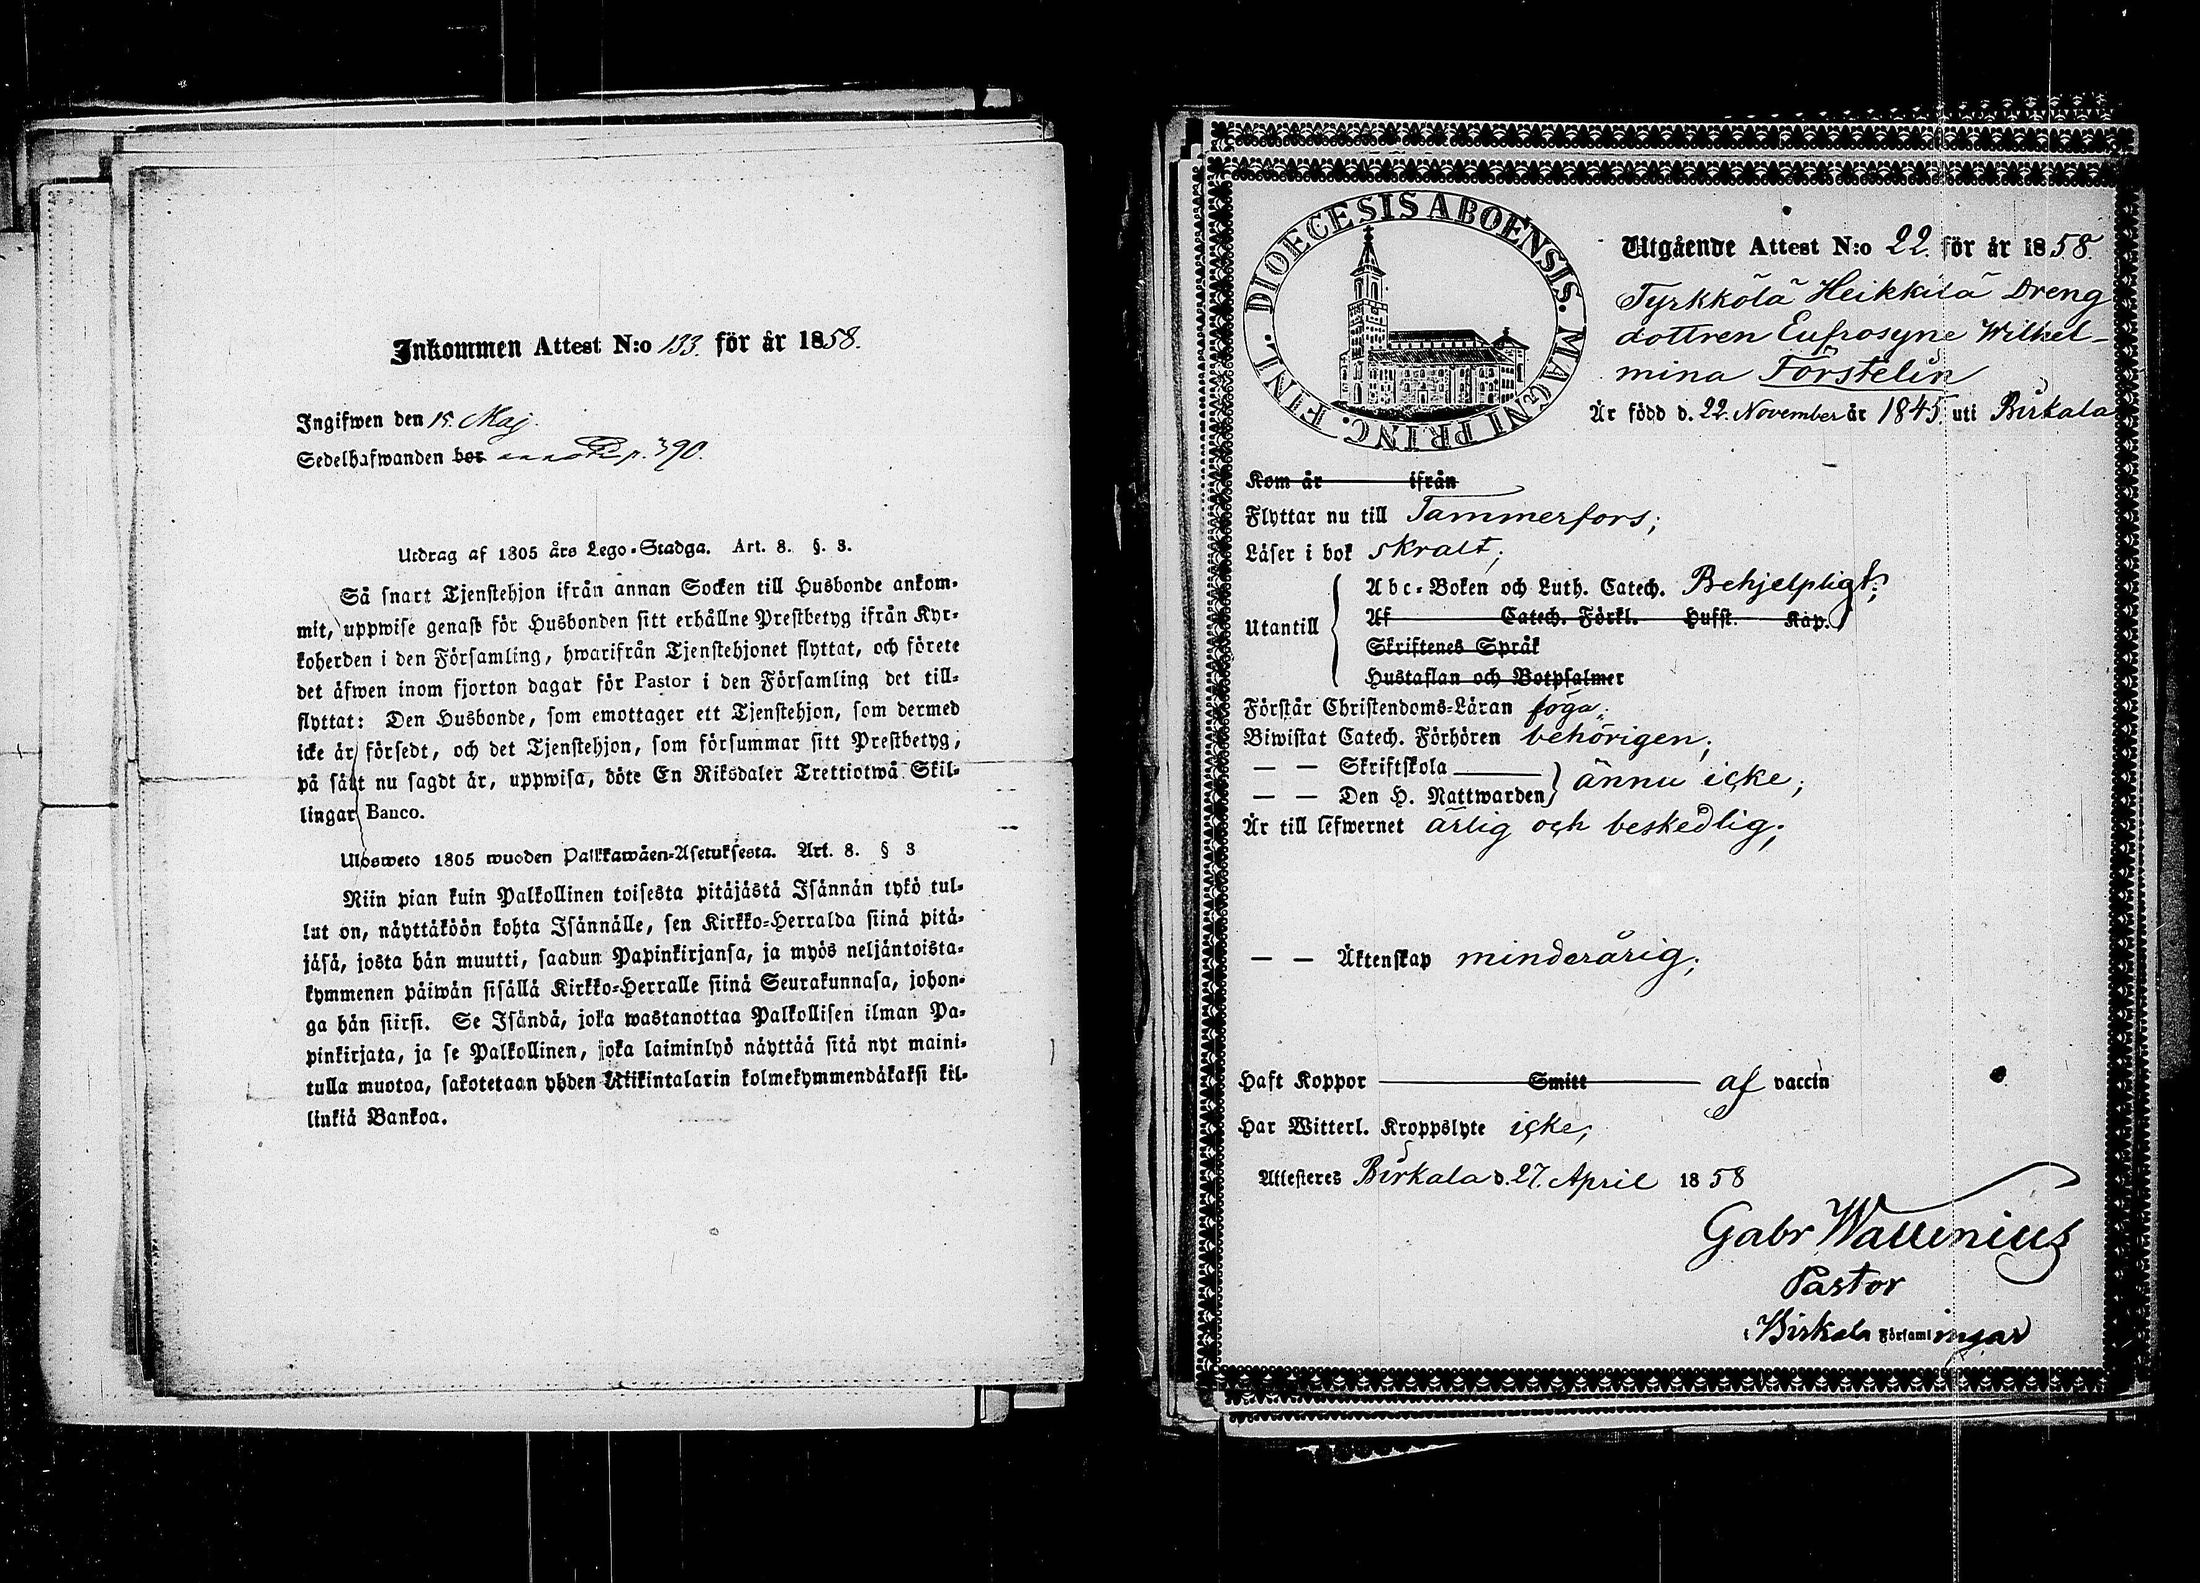 Inkommen Attest N:o 133. för år 1858.
Ingifwen den 15. Maj.
Sedelhafwanden bor p. 390.
Utdrag af 1805 års Lego-Stadga. Art. 8. §. 3.
Så snart Tjenstehjon ifrån annan Socken till Husbonde ankom-
mit, uppwise genast för Husbonden sitt erhållne Prestbetyg ifrån Kyr-
koherden i den Församling, hwarifrån Tjenstehjonet flyttat, och förete
det äfwen inom fjorton dagar för Pastor i den Församling det till-
flyttat: Den Husbonde, som emottager ett Tjenstehjon, som dermed
icke är försedt, och det Tjenstehjon, som försummar sitt Prestbetyg,
på sätt nu sagdt är, uppwisa, böte En Riksdaler Trettiotwå Skil-
lingar Banco.
Ulosweto 1805 wuoden Palkkawäen-Asetuksesta. Art. 8. § 3
Niin pian kuin Palkollinen toisesta pitäjästä Isännän tykö tul-
lut on, näyttäköön kohta Isännälle, sen Kirkko-Herralda siinä pitä-
jäsä, josta hän muutti, saadun Papinkirjansa, ja myös neljäntoista-
kymmenen päiwän sisällä Kirkko-Herralle siinä Seurakunnasa, johon-
ga hän siirsi. Se Isändä, joka wastanottaa Palkollisen ilman Pa-
pinkirjata, ja se Palkollinen, joka laiminlyö näyttää sitä nyt maini-
tulla muotoa, sakotetaan yhden Riikintalarin kolmekymmendäkaksi kil-
linkiä Bankoa.
DIOECESIS ABOENSIS. MAGNI PRINC. FINL.
Utgående Attest N:o 22. för år 1858.
Tyrkkölä Heikkilä Dreng
dottren Eufrosyne Wilhel-
mina Förstelin
Är född d. 22. November år 1845. uti Birkala
Kom år ifrån
Flyttar nu till Tammerfors;
Läser i bok skralt;
Utantill
Abc-Boken och Luth. Catech. Behjelpligt;
Af Catech. Förkl. Husst. Kap.
Skriftenes Språk
Hustaflan och Botpsalmer
Förstår Christendoms-Läran föga;
Biwistat Catech. Förhören behörigen;
— — Skriftskola
— — Den H. Nattwarden ännu icke;
Är till lefwernet ärlig och beskedlig;
— — Äktenskap minderårig;
Haft Koppor Smitt af vaccin
Har Witterl. Kroppslyte icke;
Attesteres Birkala d. 27. April 1858
Gabr Wallenius
Pastor
i Birkala Församlingar